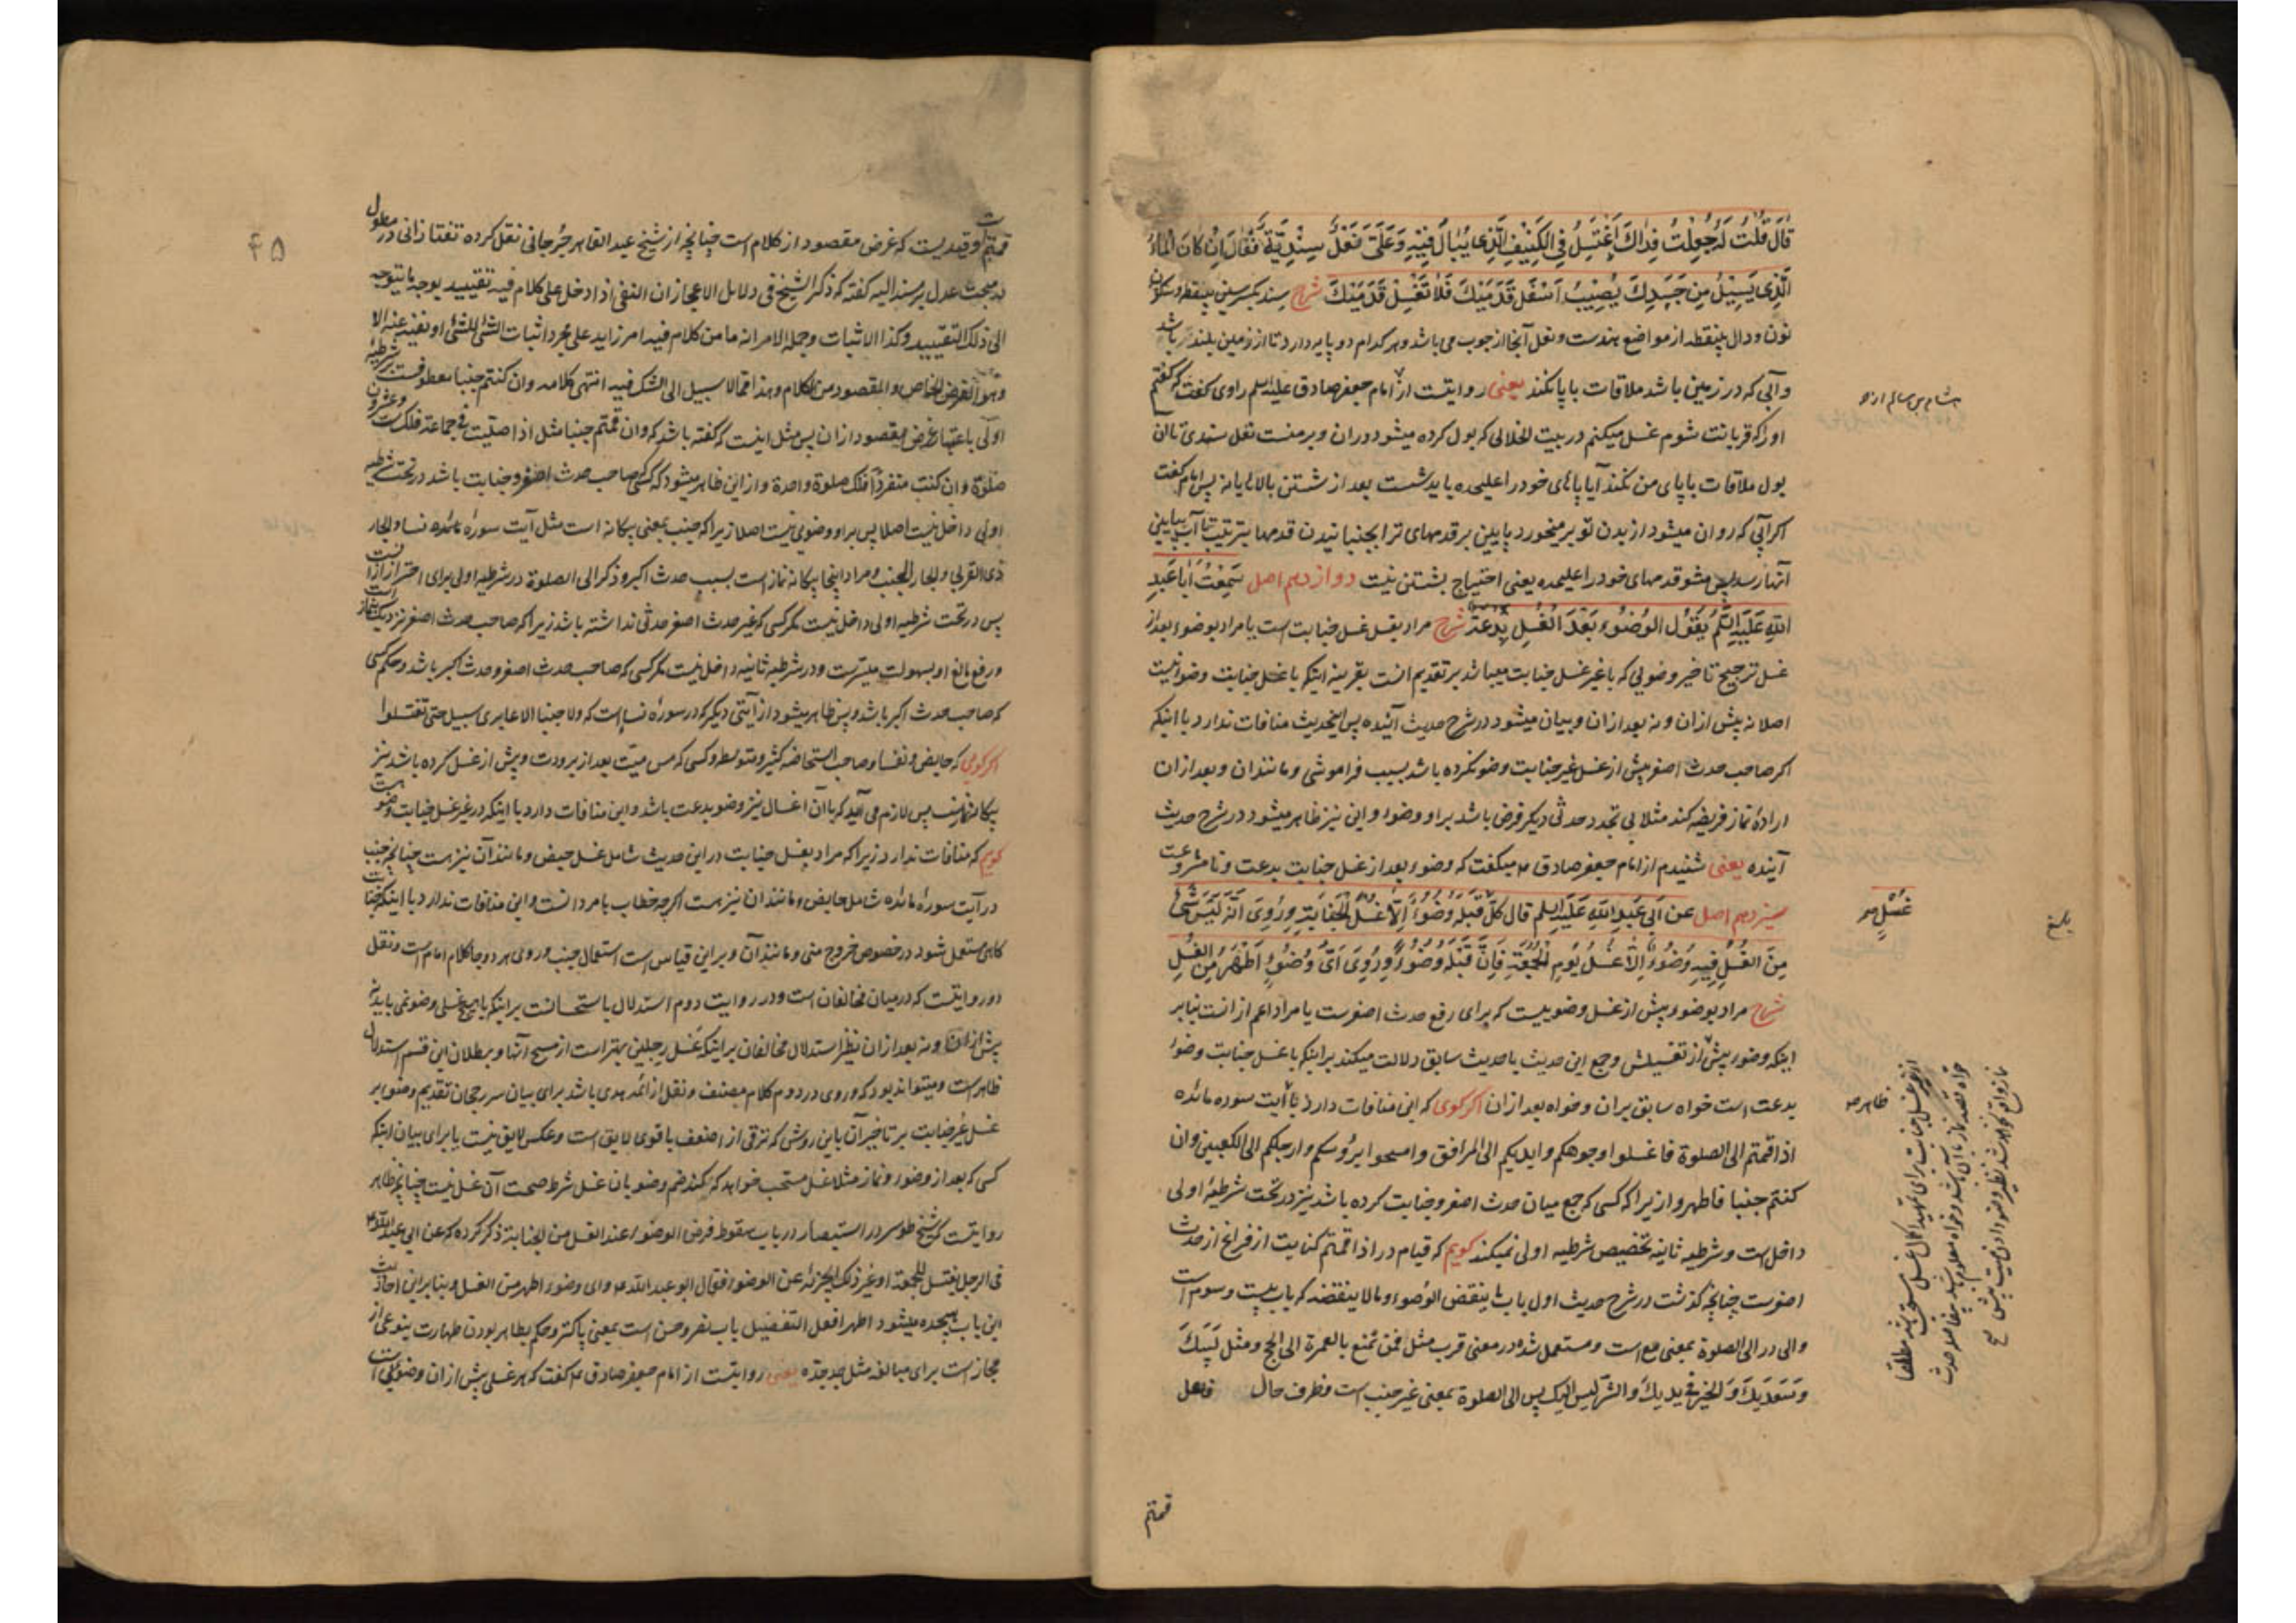 قال قلت له جعلت فداك اغتسل في الكنيف الذي يبال فيه وعلي نعل سندية فقال ان كان الماء
الذي يسيل من جسدك يصيب اسفل قدميك فلا تغسل قدميك شرح سند بكسر سين بينقطه وسكون
نون ودال بينقطه از مواضع هندست ونعل آنجا از چوب مي باشد وهر كدام دو پايه دارد تا از زمين بلند باشد
وآبي كه در زمين باشد ملاقات با پا نكند يعني روايتست از امام جعفر صادق عليه السلم راوي گفت كه گفتم
او را كه قربانت شوم غسل ميكنم در بيت الخلائي كه بول كرده ميشود در ان وبر منست نعل سندي تا ان
بول ملاقات با پاي من نكند آيا پاهاي خود را عليحده بايد شست بعد از شستن بالا يا نه پس امام گفت
اگر آبي كه روان ميشود از بدن تو بر ميخورد پايين بر قدمهاي ترا بجنبانيدن قدمها بترتيب تا آب بپايين
آنها رسد پس مشو قدمهاي خود را عليحده يعني احتياج بشستن نيست دوازدهم اصل سمعت ابا عبد
الله عليه السلم يقول الوضوء بعد الغسل بدعة شرح مراد بغسل غسل جنابت است يا مراد بوضوء بعد از
غسل ترجيح تاخير وضويي كه با غير غسل جنابت ميباشد بر تقديم انست بقرينه اينكه با غسل جنابت وضو نيست
اصلا نه پيش از ان ونه بعد از ان وبيان ميشود در شرح حديث آينده پس اينحديث منافات ندارد با اينكه
اگر صاحب حدث اصغر پيش از غسل غير جنابت وضو نكرده باشد بسبب فراموشي ومانند ان وبعد از ان
ارادۀ نماز فريضه كند مثلا بي تجدد حدثي ديگر فرض باشد بر او وضوء واين نيز ظاهر ميشود در شرح حديث
آينده يعني شنيدم از امام جعفر صادق ع ميگفت كه وضوء بعد از غسل جنابت بدعت ونامشروعست
سيزدهم اصل عن ابي عبد الله عليه السلم قال كل غسل قبله وضوء الا غسل الجنابة وروي انه ليس شئ
من الغسل فيه وضوء الا غسل يوم الجمعة فان قبله وضوء وروي اي وضوء اطهر من الغسل
شرح مراد بوضوء پيش از غسل وضوييست كه براي رفع حدث اصغرست يا مراد اعم از انست بنابر
اينكه وضوء پيش از تغسيلش وجمع اين حديث با حديث سابق دلالت ميكند بر اينكه با غسل جنابت وضوء
بدعت است خواه سابق بر ان وخواه بعد از ان اگر گوئي كه اين منافات دارد با آيت سوره مائده
اذا قمتم الى الصلوة فاغسلوا وجوهكم وايديكم الى المرافق وامسحوا برؤسكم وارجلكم الى الكعبين وان
كنتم جنبا فاطهروا زيرا كه كسي كه جمع ميان حدث اصغر وجنابت كرده باشد نيز در تحت شرطيۀ اولى
داخل است وشرطيه ثانيه تخصيص شرطيه اولى نميكند گويم كه قيام در اذا قمتم كنايت از فراغ از حدث
اصغرست چنانچه گذشت در شرح حديث اول باب ما ينقض الوضوء وما لا ينقضه كه باب بيست وسوم است
والى در الى الصلوة بمعني مع است ومستعمل شده در معني قرب مثل فمن تمتع بالعمرة الى الحج ومثل لبيك
وسعديك والخير في يديك والشر ليس اليك پس الى الصلوة بمعني غير جنب است وظرف حال فاعل
قمتم
هشام بن سالم
غسل صح
بلغ
ظاهر صح
۴۵
قمتم وقيديست كه غرض مقصود از كلام است چنانچه از شيخ عبد القاهر جرجاني نقل كرده تفتازاني در مطول
در مبحث عدل بر مسند اليه گفته كه ذكر الشيخ في دلايل الاعجاز ان النفي اذا دخل على كلام فيه تقييد بوجه ما يتوجه
الى ذلك التقييد وكذا الاثبات وجملة الامر انه ما من كلام فيه امر زايد على مجرد اثبات الشئ للشئ او نفيه عنه الا
وهو الغرض الخاص والمقصود من الكلام وهذا مما لا سبيل الى الشك فيه انتهى كلامه وان كنتم جنبا معطوفست بر شرطيۀ
اولى باعتبار غرض مقصود از ان پس مثل اينست كه گفته باشد كه وان قمتم جنبا مثل اذا صليت في جماعة فلك ست وعشرون
صلوة وان كنت منفردا فلك صلوة واحدة واز اين ظاهر ميشود كه كسي كه صاحب حدث اصغر وجنابت باشد در تحت شرطيه
اولى داخل نيست اصلا پس بر او وضوئي نيست اصلا زيرا كه جنب بمعني بيگانه است مثل آيت سورۀ نساء والجار
ذي القربى والجار الجنب ومراد اينجا بيگانه نماز است بسبب حدث اكبر وذكر الى الصلوة در شرطيه اولى براي احتراز از انست
پس در تحت شرطيه اولى داخل نيست مگر كسي كه غير حدث اصغر حدثي نداشته باشد زيرا كه صاحب حدث اصغر نزديك بنماز است
ورفع مانع او بسهولت ميسرست ودر شرطيه ثانيه داخل نيست مگر كسي كه صاحب حدث اصغر وحدث اكبر باشد وحكم كسي
كه صاحب حدث اكبر باشد وبس ظاهر ميشود از آيتي ديگر كه در سورۀ نساست كه ولا جنبا الا عابري سبيل حتى تغتسلوا
اگر گوئي كه حايض ونفسا وصاحب استحاضه كثيره ومتوسطه وكسي كه مس ميت بعد از برودت وپيش از غسل كرده باشد نيز
بيگانه نمازست پس لازم مي آيد كه با آن اغسال نيز وضو بدعت باشد واين منافات دارد با اينكه در غير غسل جنابت وضو هست
گويم كه منافات ندارد زيرا كه مراد بغسل جنابت در اين حديث شامل غسل حيض ومانند آن نيز هست چنانچه جنب
در آيت سورۀ مائده شامل حايض ومانند ان نيز هست اگر چه خطاب با مردانست واين منافات ندارد با اينكه جنابت
گاهي مستعمل شود در خصوص خروج مني ومانند آن وبر اين قياس است استعمال جنب وروي هر دو جا كلام امام است ونقل
دو روايتست كه در ميان مخالفان است ودر روايت دوم استدلال باستحسانست بر اينكه با هيچ غسلي وضو نمي بايد نه
پيش از ان ونه بعد از ان نظير استدلال مخالفان بر اينكه غسل رجلين بهتر است از مسح آنها وبطلان اين قسم استدلال
ظاهرست وميتواند بود كه وروي در دوم كلام مصنف ونقل از ائمه هدى باشد براي بيان سر رجحان تقديم وضو بر
غسل غير جنابت بر تاخير آن باين روش كه ترقي از اضعف باقوى لايق است وعكس لايق نيست يا براي بيان اينكه
كسي كه بعد از وضوء ونماز مثلا غسل مستحب خواهد كه بكند ضم وضو بان غسل شرط صحت آن غسل نيست چنانچه ظاهر
روايتست كه شيخ طوسي در استبصار در باب سقوط فرض الوضوء عند الغسل من الجنابة ذكر كرده كه عن ابي عبد الله ع
في الرجل يغتسل للجمعة او غير ذلك ايجزئه عن الوضوء فقال ابو عبد الله ع واي وضوء اطهر من الغسل وبنابر اين احاديث
اين باب هيجده ميشود اطهر افعل التفضيل باب نصر وحسن است بمعني پاكتر وحكم بطاهر بودن طهارت بنوعي از
مجاز است براي مبالغه مثل جد جده يعني روايتست از امام جعفر صادق ع گفت كه هر غسلي پيش از ان وضوئي است